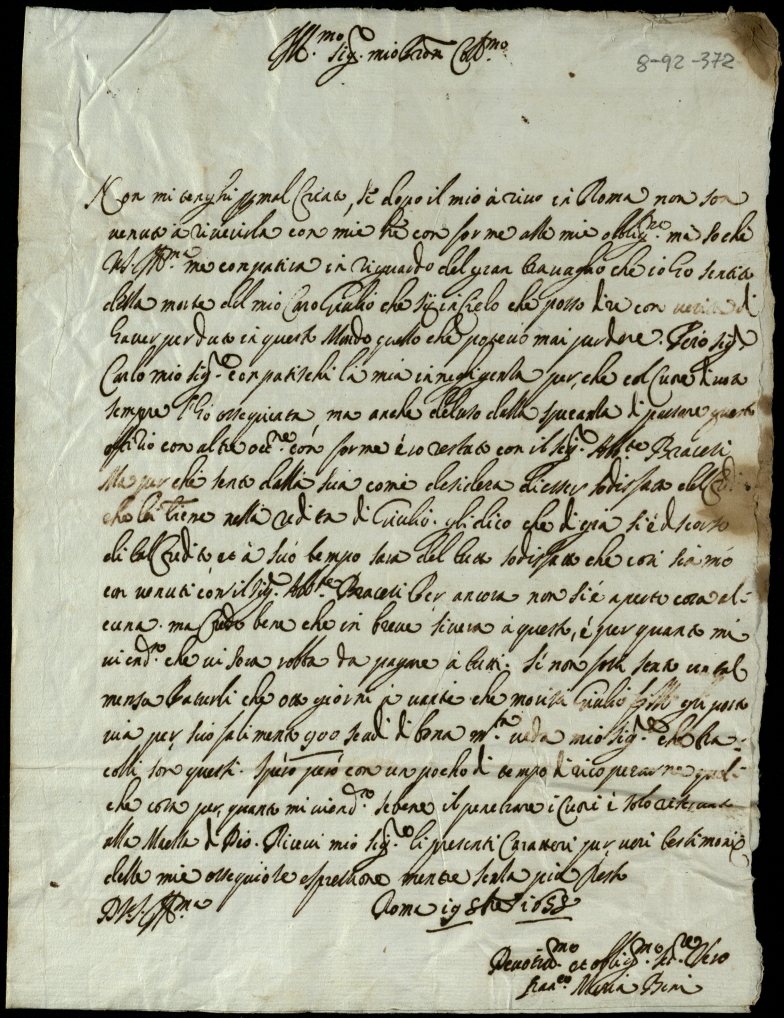 Ill.mo Sig.r mio Pron Coll.mo
8-92-372
Non mi tenghi p mal Creato, se dopo il mio arivo in Roma non son
venuto à riverirla con mie con forme alle mie oblig.ni ma so che
V.S. Ill.ma me conpatira in riguardo del gran travaglio che io ho sentito
della morte del mio Caro Giulio che sij in Cielo che posso dire con verita di
haver perduto in questo Mondo quello che potevo mai perdere. Però sig.r
Carlo mio sig.re conpatischi la mia inneghigenza perche col Cuore di vota
sempre l'ho ossequiata, ma anche deluso dalla speranza di passare questo
offitio con altra occ.ne con forme ero restato con il sig.r Ab.te Braceti
Ma perche sento dalla sua come desidera di esser sodisfatto del
che lei tiene nella redita di Giulio. gli dico che di gia si è discorso
di tal Credito et à suo tempo sara del tutto sodisfatto che cosi siamo
con venuti con il Sig.r Ab.te Braceti Per ancora non si è aperto cosa al=
cuna. ma Credo bene che in breve si vera à questo, é per quanto mi
vien d.to che vi sara robba da pagare à tutti. Si non fosse stato un tal
mensu che otto giorni avante che morisse Giulio gli porto
via per suo falimento 900 scudi di bona m.ta veda mio sig.re che tra=
colli son questi. Spero però con un pocho di tempo di ricoperarne qual=
che cosa per quanto mi vien d.to sebene il penetrare i Cuori è solo reservato
alla Maestà di Dio. Ricevi mio sig.re li presenti Caratteri per veri testimonij
delle mie ossequiose espressione mentre senza più Resto
D V.S. Ill.ma Roma 19 8bre 1658
Devotiss.mo et oblig.mo Se.re Vero
Fran.co Maria Bini